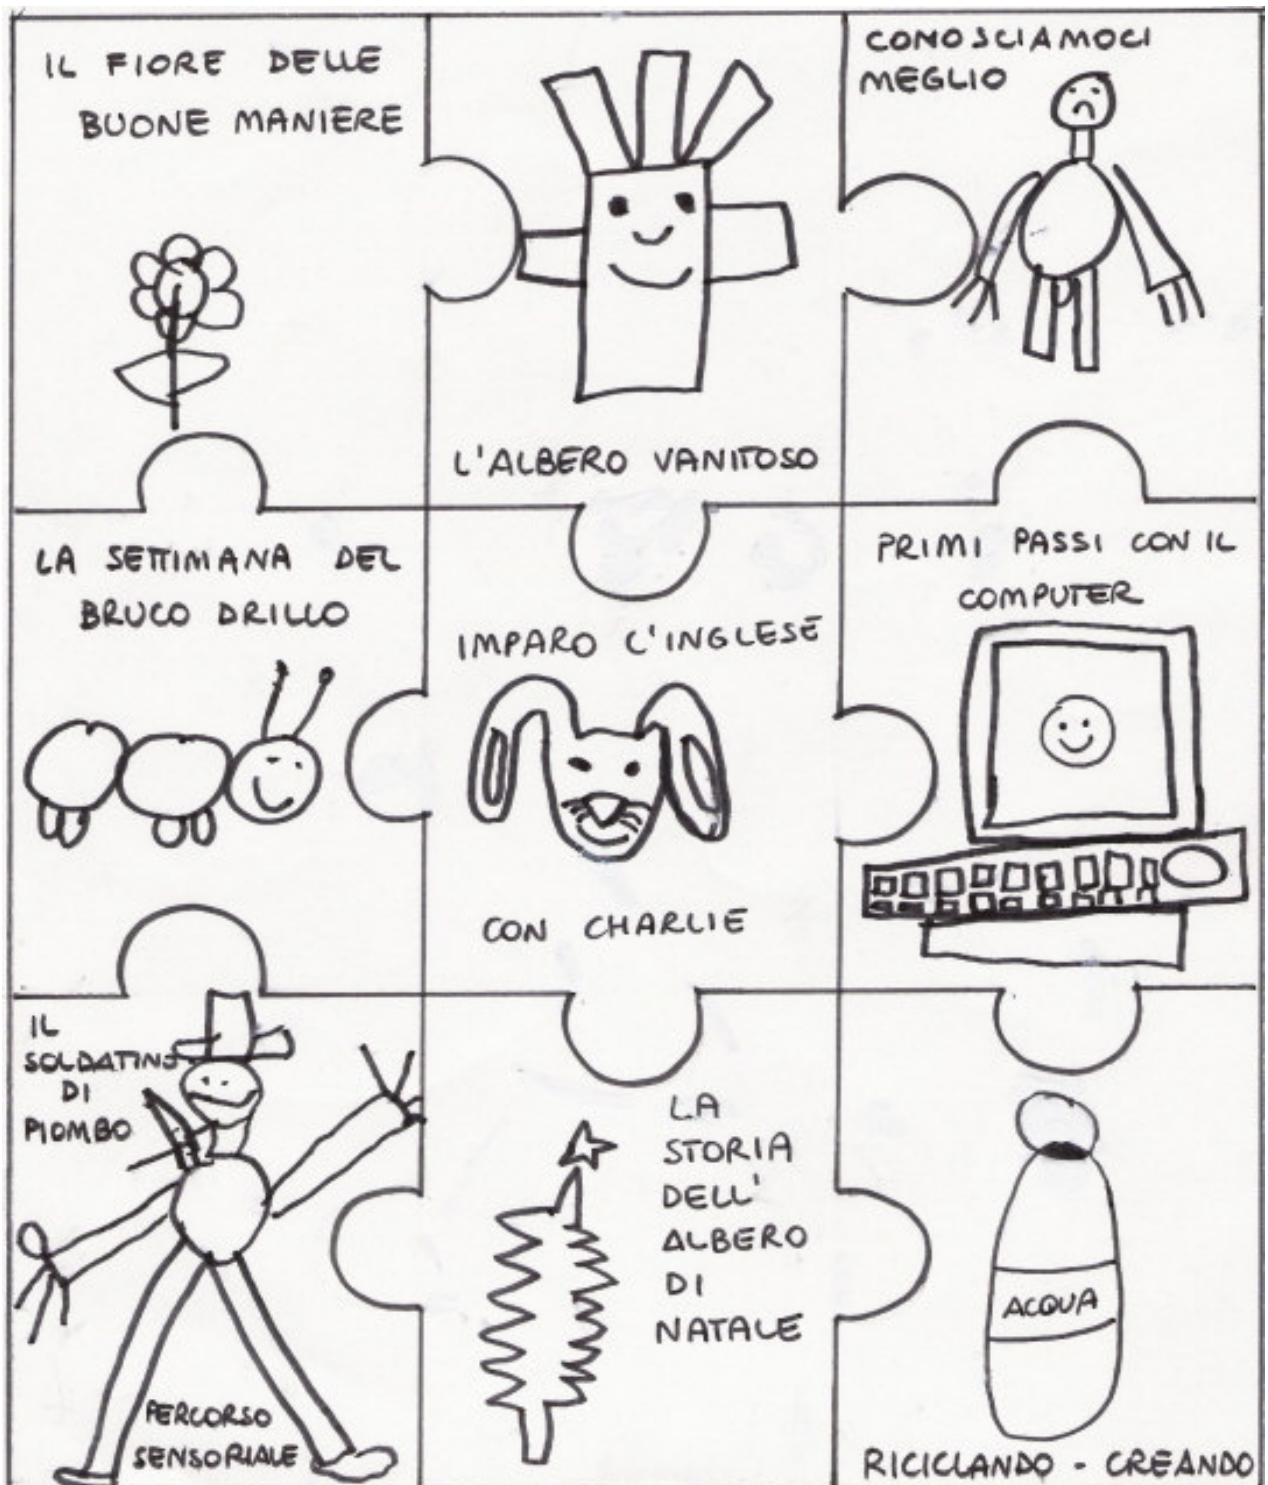 IL FIORE DELLE
BUONE MANIERE
L'ALBERO VANITOSO
CONOSCIAMOCI
MEGLIO
LA SETTIMANA DEL
BRUCO DRILLO
IMPARO L'INGLESE
CON CHARLIE
PRIMI PASSI CON IL
COMPUTER
IL
SOLDATINO
DI
PIOMBO
PERCORSO
SENSORIALE
LA
STORIA
DELL'
ALBERO
DI
NATALE
ACQUA
RICICLANDO - CREANDO